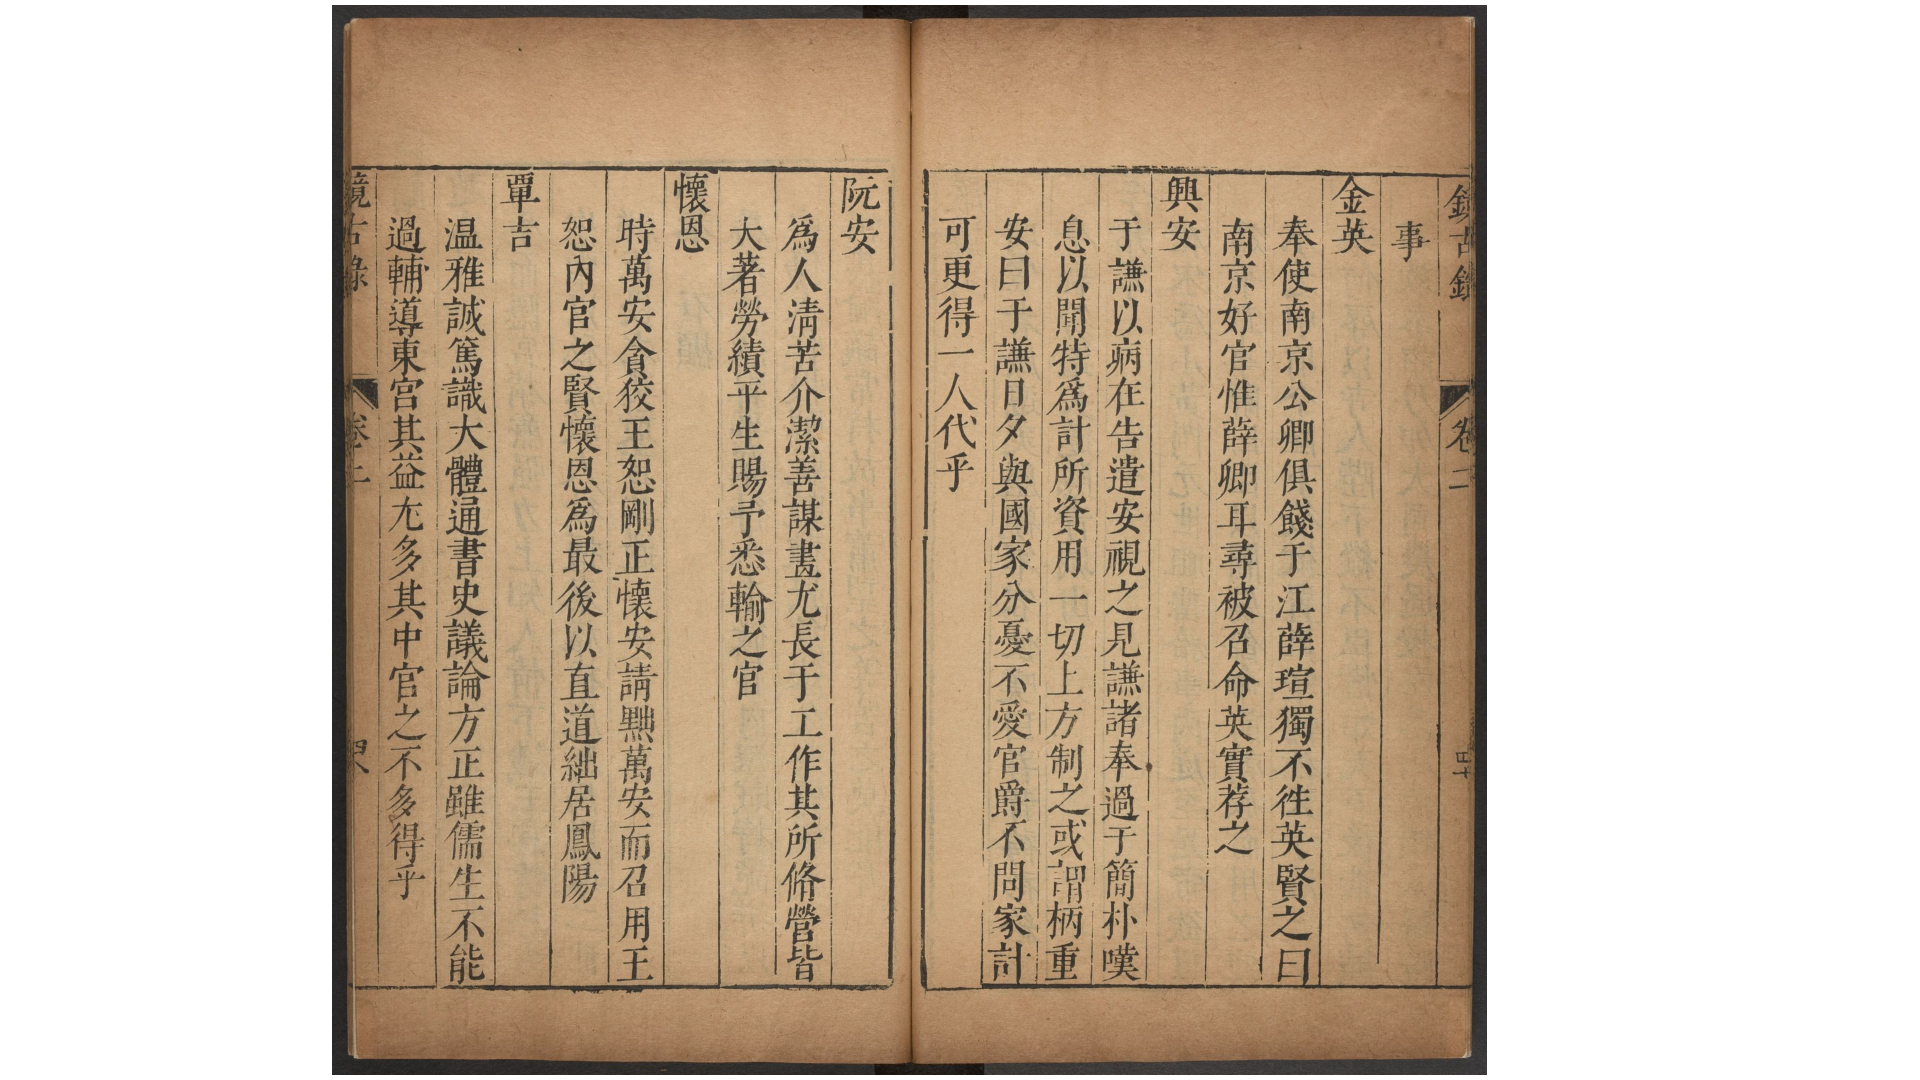 鏡古錄 卷二 四十
事
金英
奉使南京公卿俱餞于江薛瑄獨不徃英賢之曰
南京好官惟薛卿耳尋被召命英實荐之
興安
于謙以病在告遣安視之見謙諸奉過于簡朴嘆
息以聞特爲計所資用一切上方制之或謂柄重
安曰于謙日夕與國家分憂不愛官爵不問家計
可更得一人代乎
阮安
爲人淸苦介潔善謀畫尤長于工作其所脩營皆
大著勞績平生賜予悉輸之官
懷恩
時萬安貪狡王恕剛正懷安請黜萬安而召用王
恕內官之賢懷恩爲最後以直道絀居鳳陽
覃吉
温雅誠篤識大體通書史議論方正雖儒生不能
過輔導東宮其益尤多其中官之不多得乎
鏡古錄 卷二